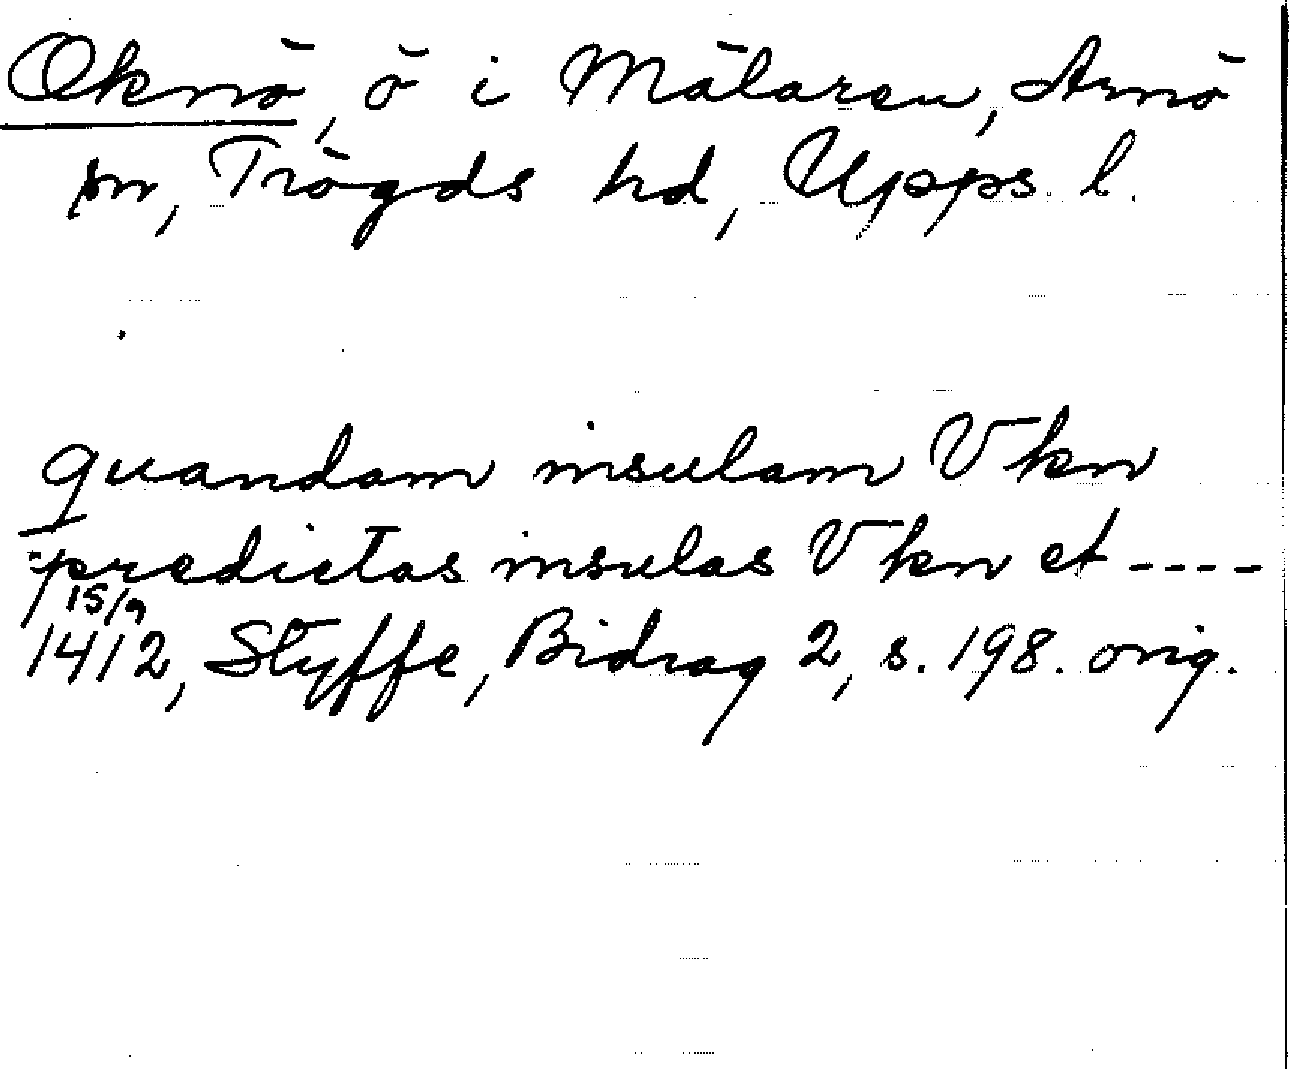 Oknö, ö i Mälaren, Arnö
sn, Trögds hd, Upps. l.
quandam insulam Vkn
predictas insulas Vkn et ----
15/9
1412, Styffe, Bidrag 2, s. 198. orig.